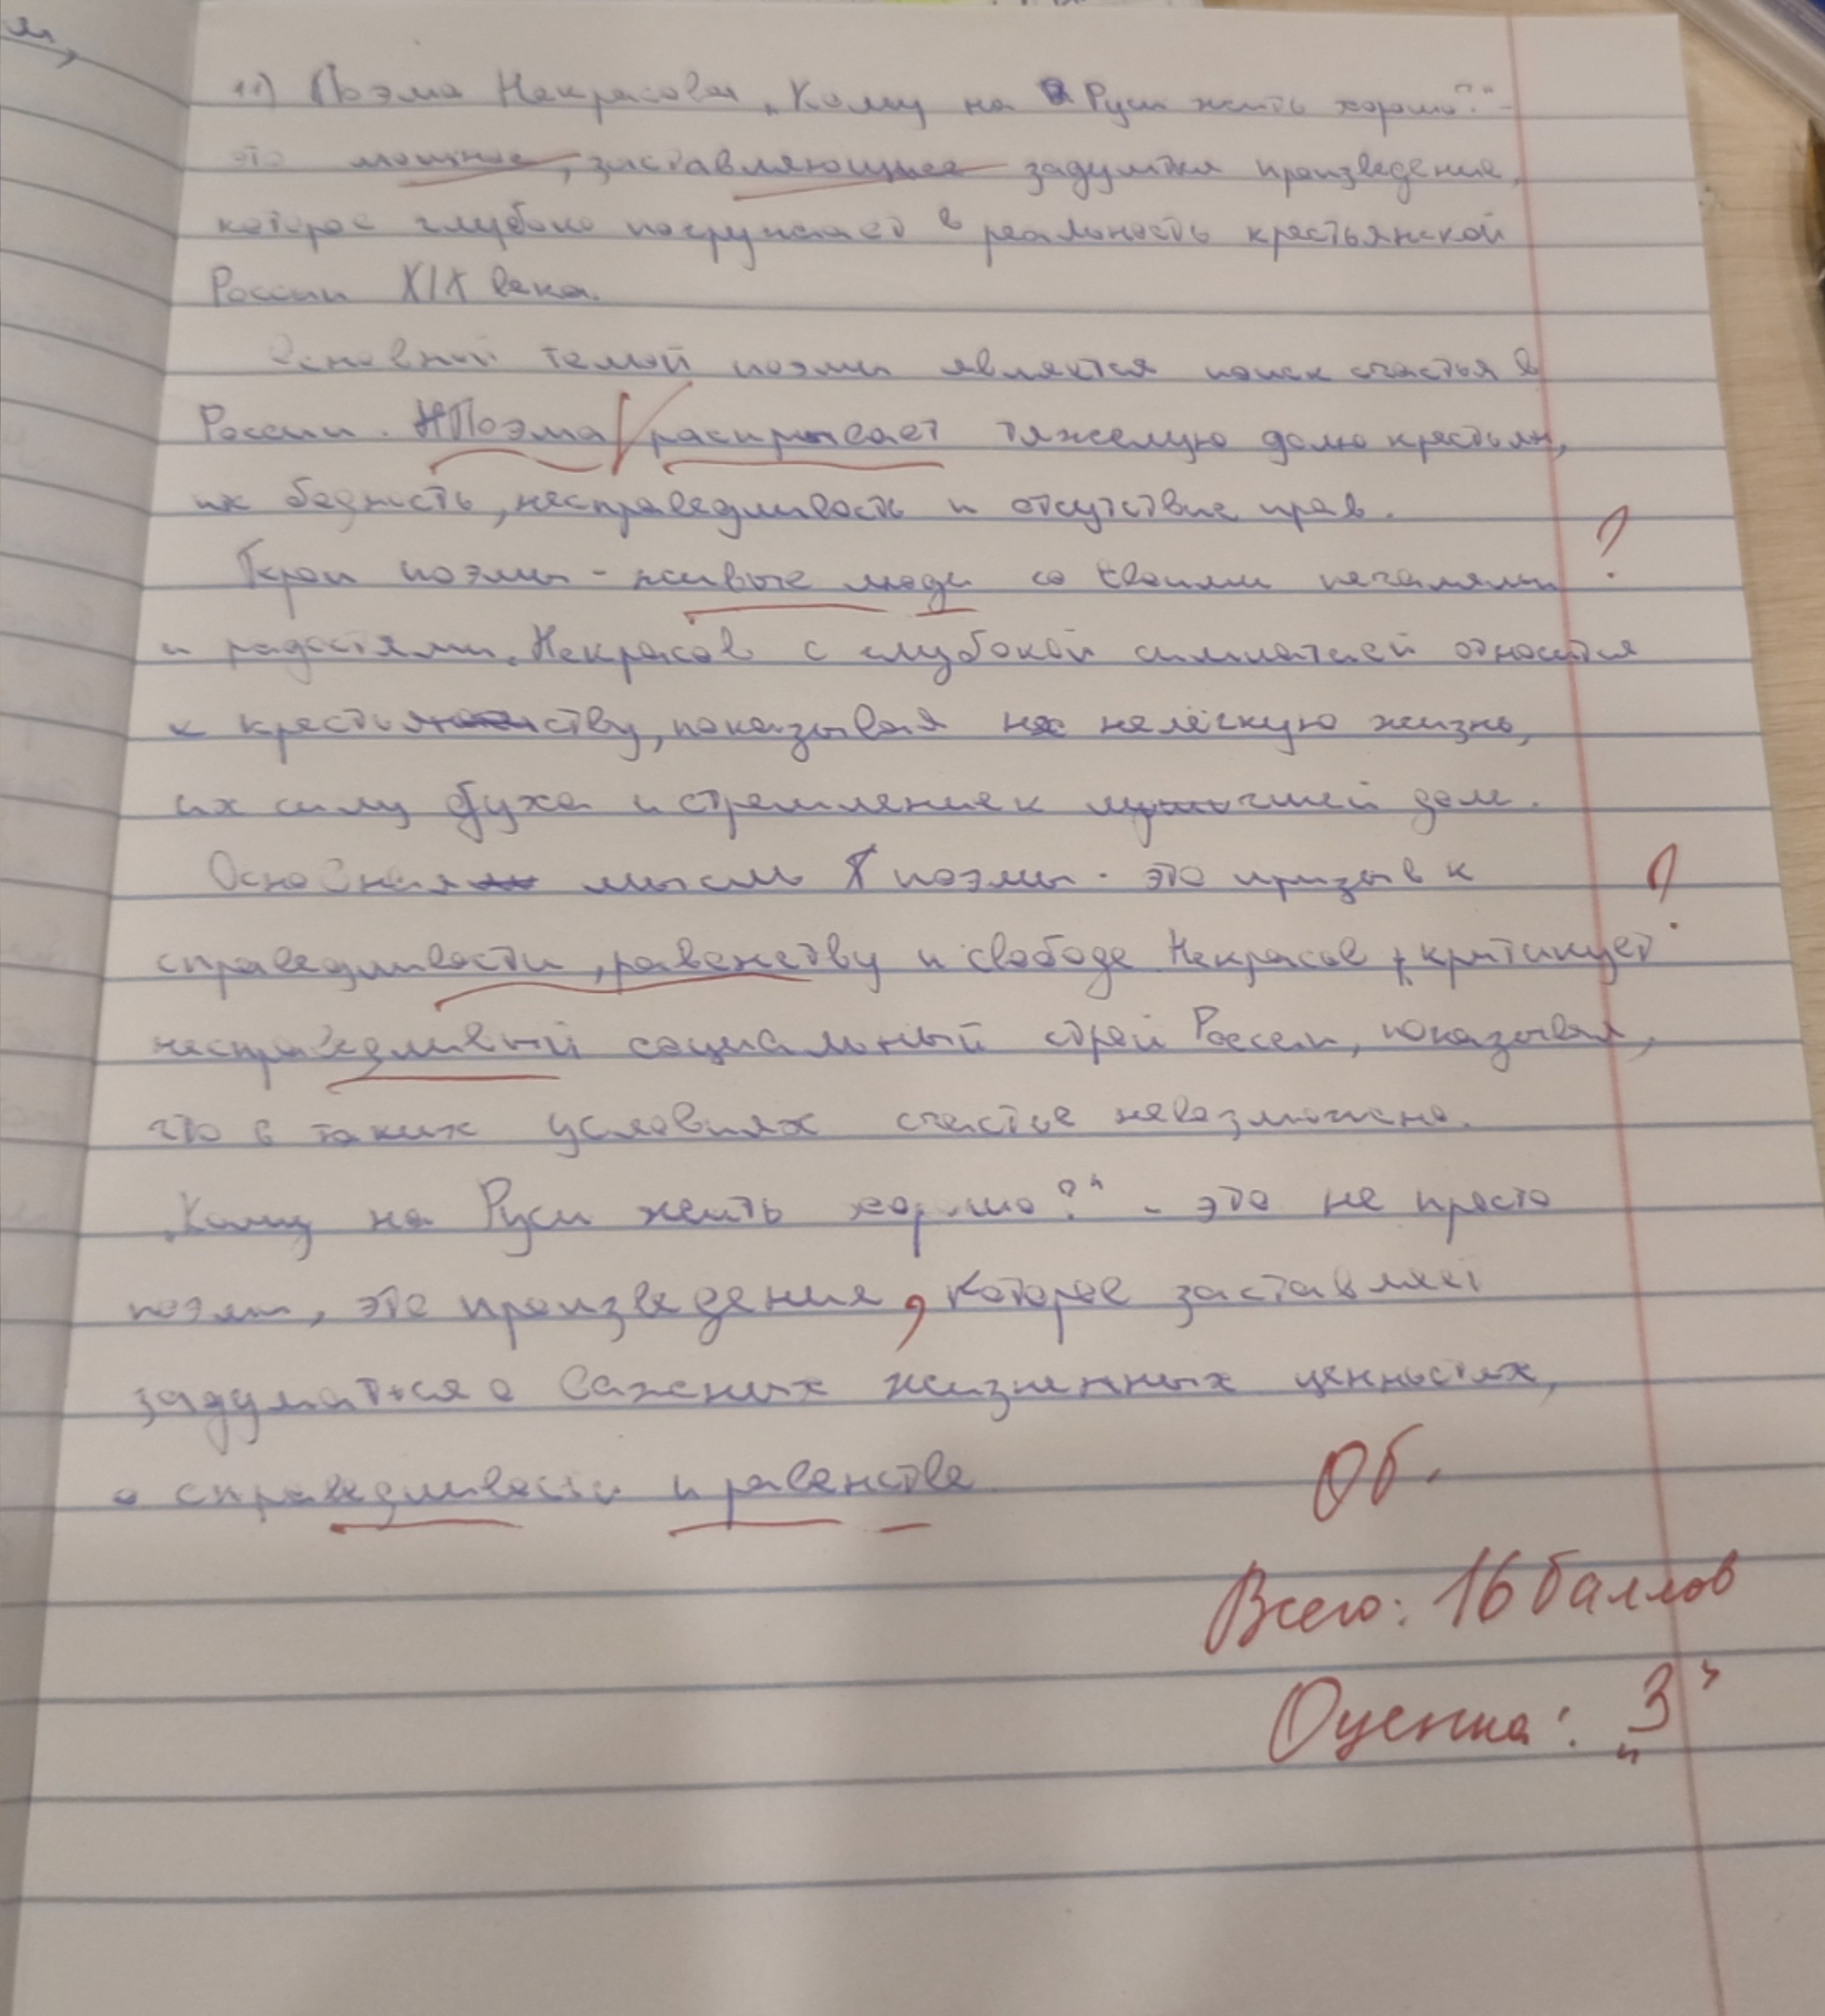 м,
11) Поэма Некрасова „Кому на Руси жить хорошо?" -
это мощное, заставляющее задуматся произведение,
которое глубоко погружает в реальность крестьянской
России XIX века.
Основной темой поэмы является поиск счастья в
России. Поэма раскрывает тяжелую долю крестьян,
их бедность, несправедливость и отсутствие прав.
Герои поэмы - живые люди со своими печалями ?
и радостями. Некрасов с глубокой симпатией относится
к крестьянству, показывая их нелёгкую жизнь,
их силу духа и стремление к лучшей доле.
Основная мысль поэмы - это призыв к ?
справедливости, равенству и свободе. Некрасов критикует
несправедливый социальный строй России, показывая,
что в таких условиях счастье невозможно.
„Кому на Руси жить хорошо?" - это не просто
поэма, это произведение, которое заставляет
задуматься о важных жизненных ценностях,
о справедливости и равенстве.
0б.
Всего: 16 баллов
Оценка: „3"